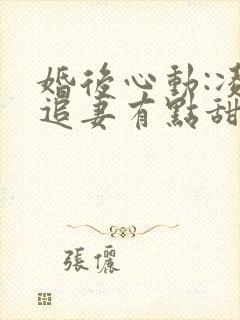 婚後心動:凌
追妻有點甜
張儷